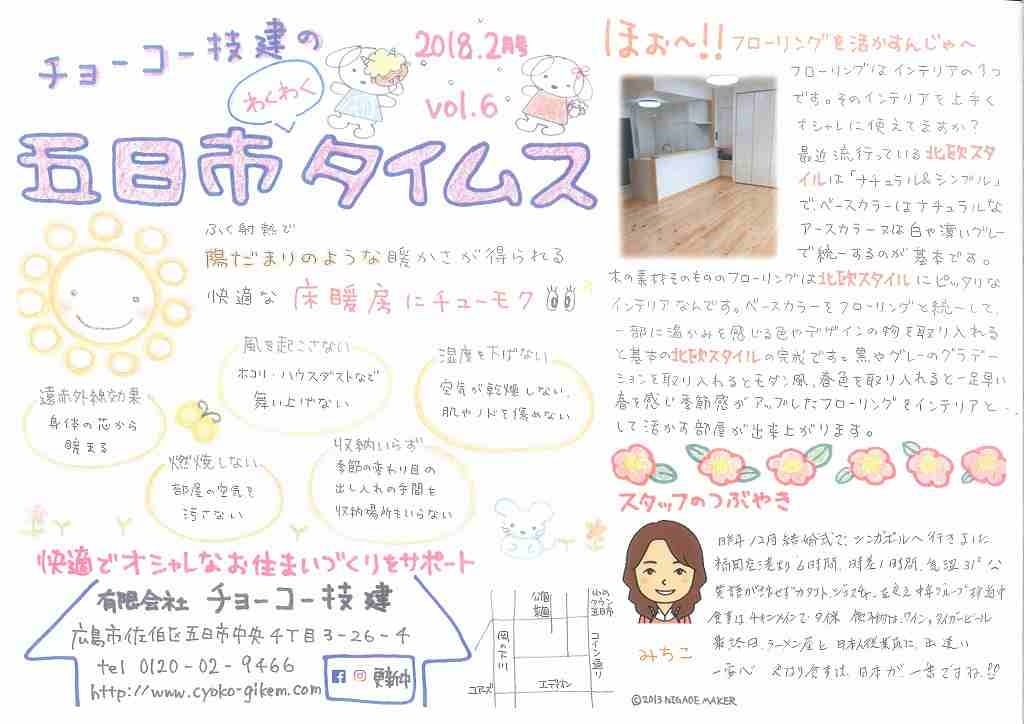 チョーコー技建の
わくわく
2018.2月号
vol.6
五日市タイムス
ふく射熱で
陽だまりのような暖かさが得られる
快適な床暖房にチューモク
遠赤外線効果
身体の芯から
暖まる
風を起こさない
ホコリ・ハウスダストなど
舞い上げない
湿度を下げない
空気が乾燥しない
肌やノドを傷めない
燃焼しない
部屋の空気を
汚さない
収納いらず
季節の変わり目の
出し入れの手間も
収納場所もいらない
快適でオシャレなお住まいづくりをサポート
有限会社 チョーコー技建
広島市佐伯区五日市中央4丁目3-26-4
tel 0120-02-9466
http://www.cyoko-gikem.com
更新中
岡の下川
コイン通り
エディオン
コアーズ
ほぉ〜!!フローリングを活かすんじゃへ
フローリングはインテリアの1つ
です。そのインテリアを上手く
オシャレに使えてますか?
最近流行っている北欧スタ
イルは「ナチュラル&シンプル」
で、ベースカラーはナチュラルな
アースカラー又は白や薄いグレー
で統一するのが基本です。
木の素材そのもののフローリングは北欧スタイルにピッタリな
インテリアなんです。ベースカラーをフローリングと統一して、
一部に温かみを感じる色やデザインの物を取り入れる
と基本の北欧スタイルの完成です。黒やグレーのグラデー
ションを取り入れるとモダン風、春色を取り入れると一足早い
春を感じ季節感がアップしたフローリングをインテリアと‥
して活かす部屋が出来上がります。
スタッフのつぶやき
昨年12月結婚式で、シンガポールへ行きました
福岡空港より6時間、時差1時間、気温31°
最終日、ラーメン屋と日本人従業員に出逢い
日本が一番ですね!!
みちこ
©2013 NIGAOE MAKER